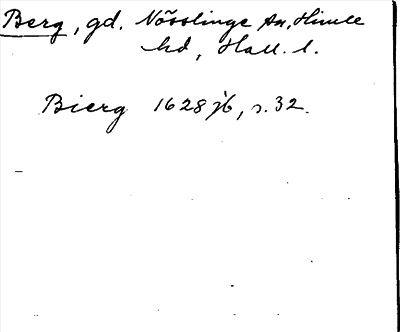 Berg, gd. Nösslinge sn, Himle
hd, Hall. l.
Bierg 1628 jb, s. 32.